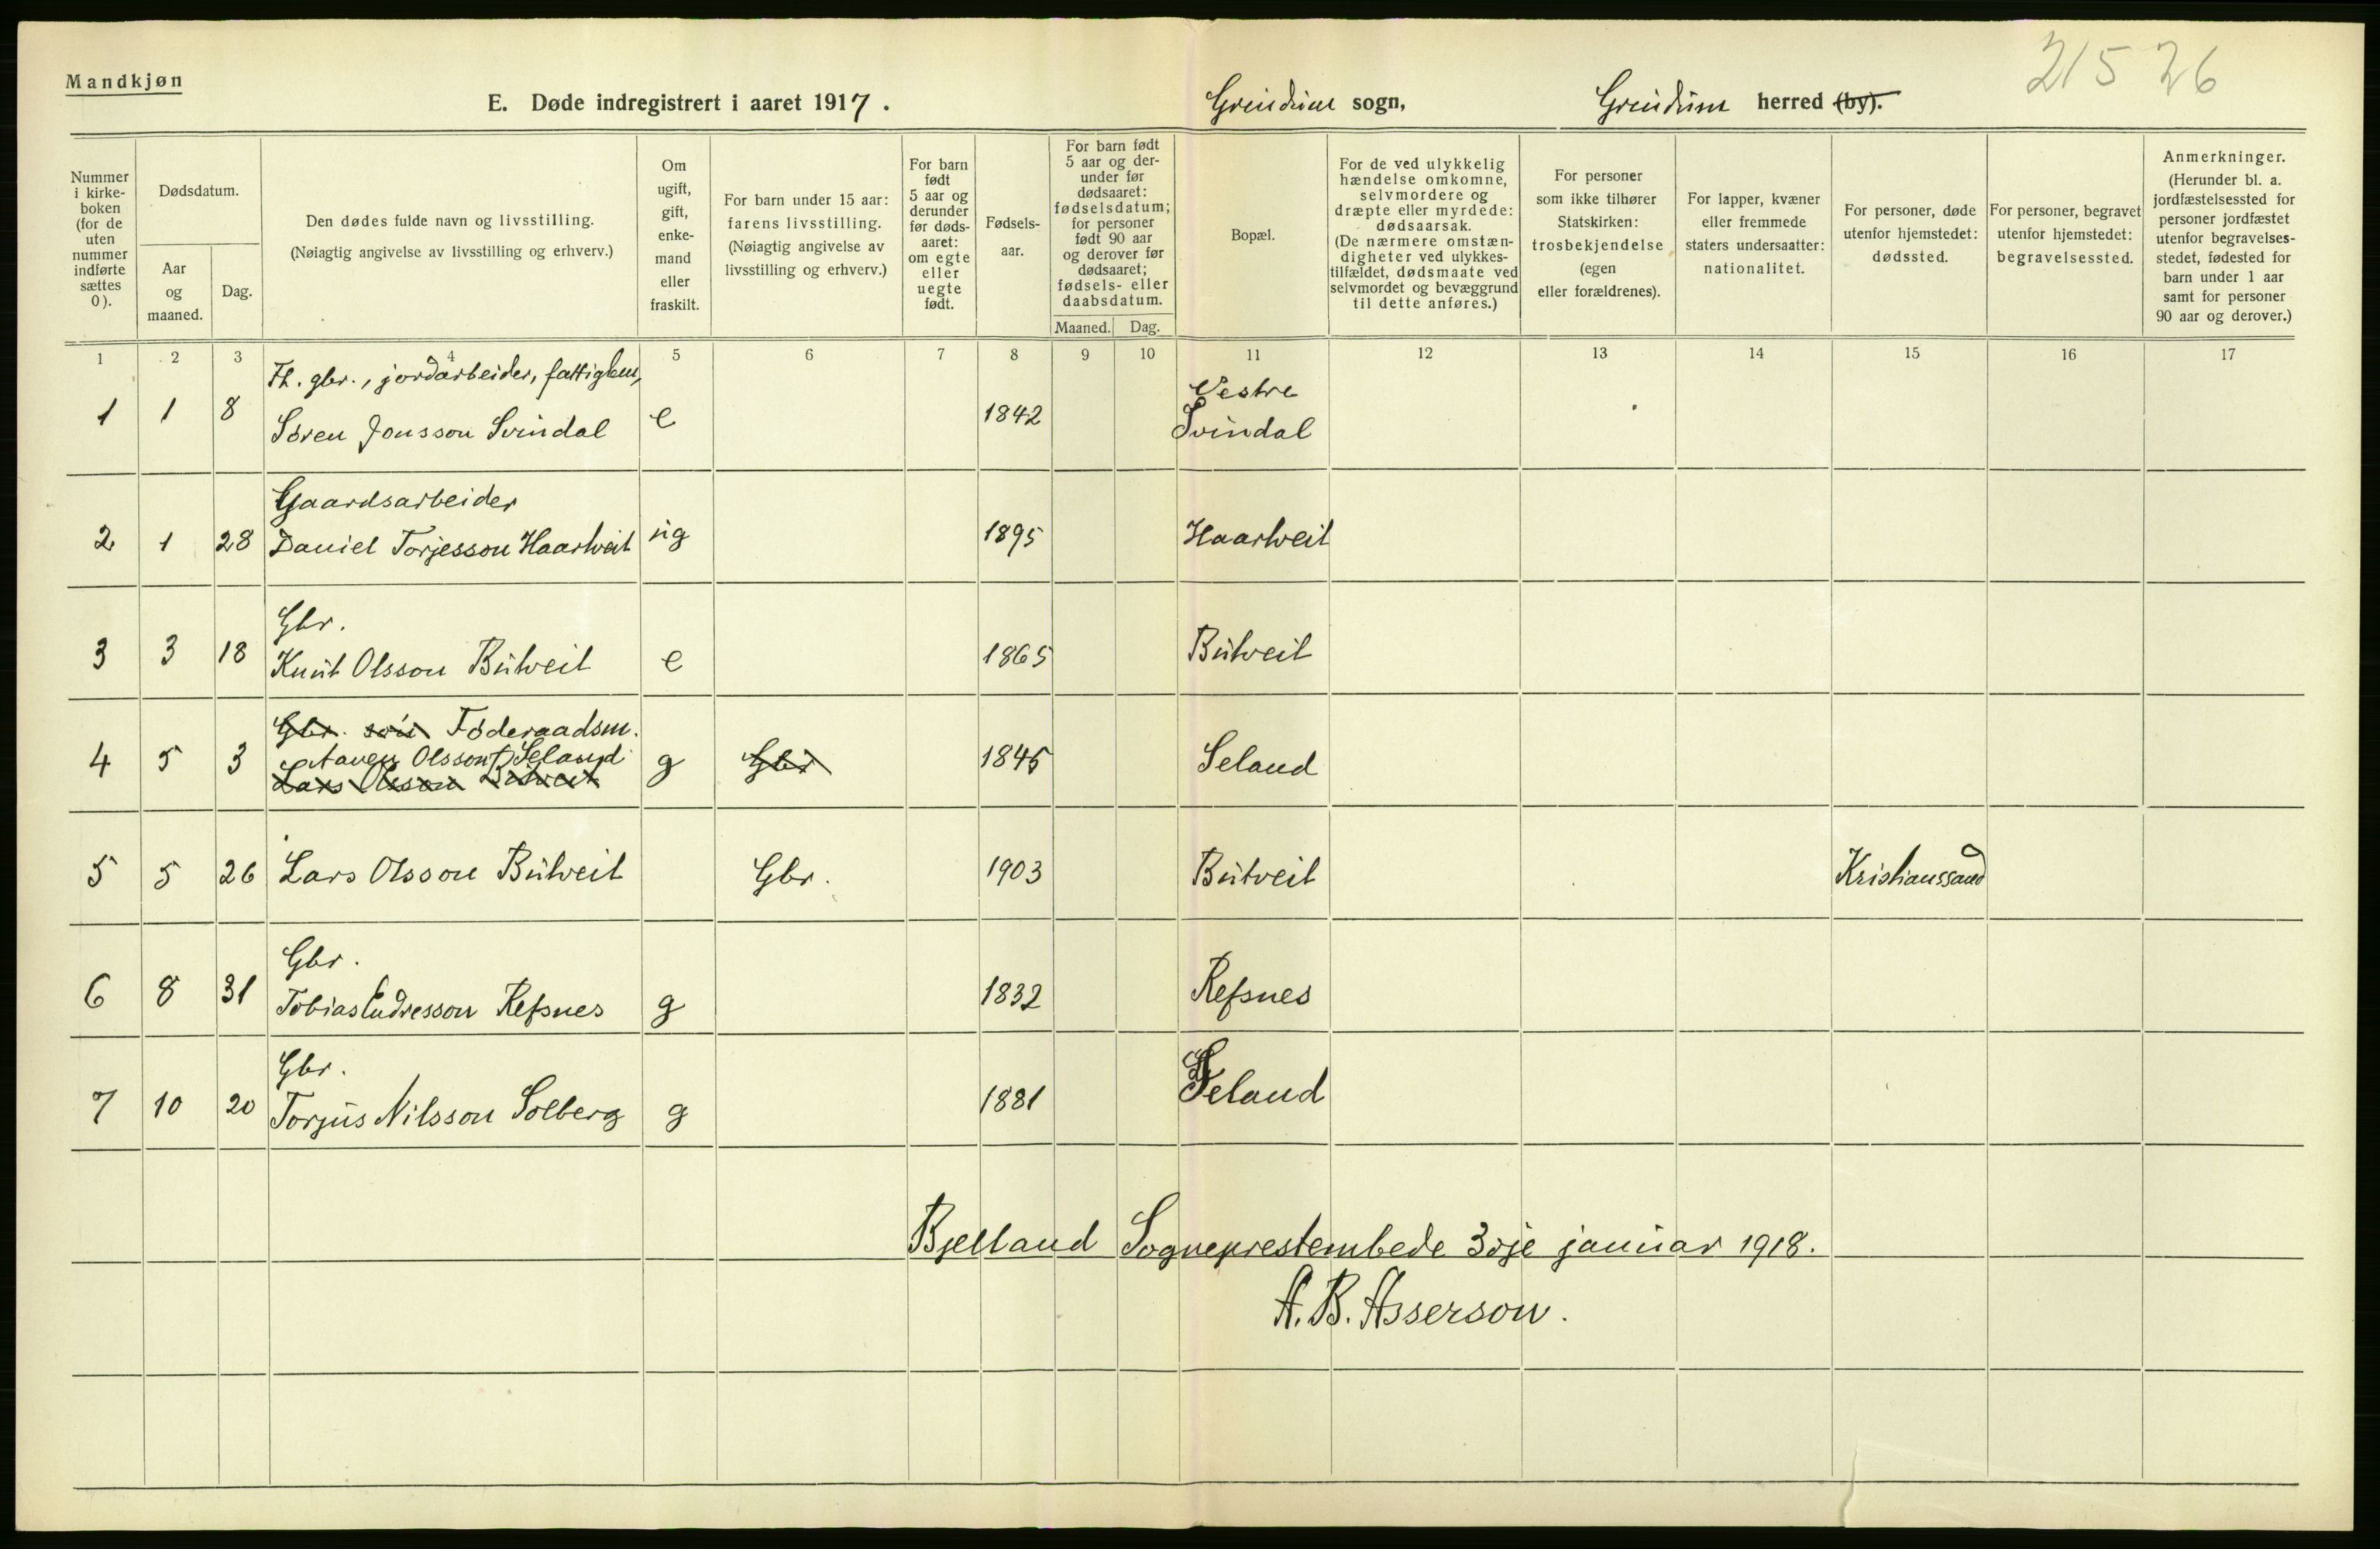 Mandkjøn
21526
E. Døde indregistrert i aaret 1917. Grindum sogn, Grindum herred (by).
Nummer i kirke-boken (for de uten nummer indførte sættes 0).
Dødsdatum.
Aar og maaned.
Dag.
Den dødes fulde navn og livsstilling.
(Nøiagtig angivelse av livsstilling og erhverv.)
Om ugift, gift, enke-mand eller fraskilt.
For barn under 15 aar: farens livsstilling.
(Nøiagtig angivelse av livsstilling og erhverv.)
For barn født 5 aar og derunder før døds-aaret: om egte eller uegte født.
Fødsels-aar.
For barn født 5 aar og der-under før dødsaaret: fødselsdatum; for personer født 90 aar og derover før dødsaaret; fødsels- eller daabsdatum.
Maaned. Dag.
Bopæl.
For de ved ulykkelig hændelse omkomne, selvmordere og dræpte eller myrdede: dødsaarsak.
(De nærmere omstæn-digheter ved ulykkes-tilfældet, dødsmaate ved selvmordet og bevæggrund til dette anføres.)
For personer som ikke tilhører Statskirken: trosbekjendelse (egen eller forældrenes).
For lapper, kvæner eller fremmede staters undersaatter: nationalitet.
For personer, døde utenfor hjemstedet: dødssted.
For personer, begravet utenfor hjemstedet: begravelsessted.
Anmerkninger.
(Herunder bl. a. jordfæstelsessted for personer jordfæstet utenfor begravelses-stedet, fødested for barn under 1 aar samt for personer 90 aar og derover.)
1 2 3 4 5 6 7 8 9 10 11 12 13 14 15 16 17
Fh. gbr., jordarbeider, fattiglem,
1 1 8 Søren Jonsson Svindal e 1842 Vestre Svindal
Gaardsarbeider
2 1 28 Daniel Torjesson Haartveit ug 1895 Haartveit
Gbr.
3 3 18 Knut Olsson Butveit e 1865 Butveit
Gbr. søn Føderaadsm.
Aanen Olsson Seland
4 5 3 Lars Olsson Butveit g Gbr 1845 Seland
5 5 26 Lars Olsson Butveit Gbr. 1903 Butveit Kristianssand
Gbr.
6 8 31 Tobias Endresson Refsnes g 1832 Refsnes
Gbr.
7 10 20 Torjus Nilsson Solberg g 1881 Seland
Bjelland Sogneprestembede 3dje januar 1918.
A. B. Asserson.